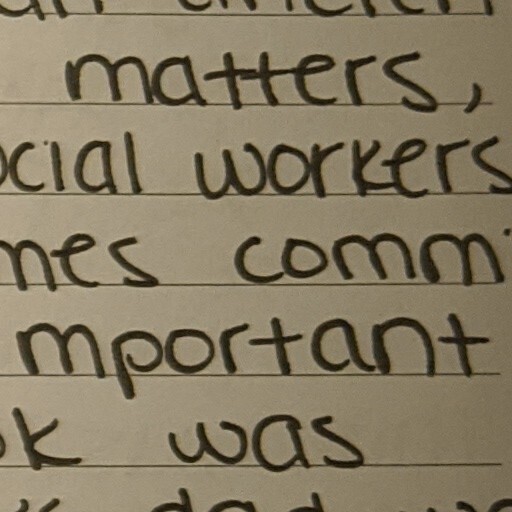 matters,
ocial workers
mes comm
mportant
ok was
dad